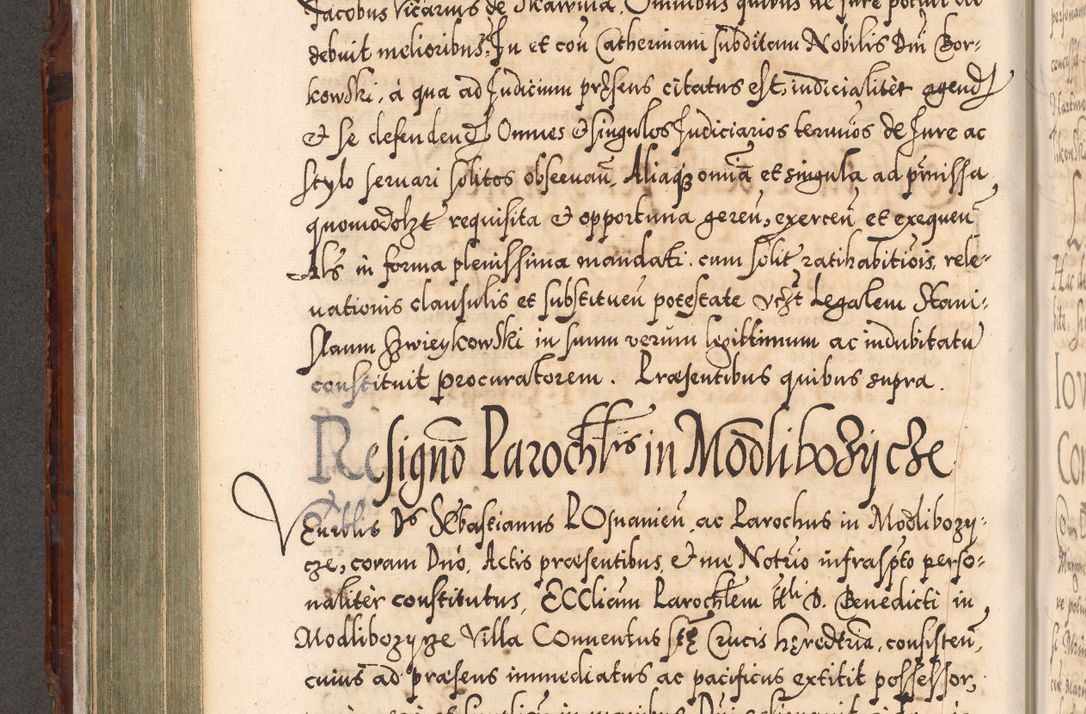 Jacobus Vicarius de Skawina. Omnibus quibus de Jure potuit ac
debuit melioribus, In et coñ Catherinam subditam Nobilis Dni Bor-
kowski, á qua ad Judicium præsens citatus est, iudicialiter agend
et se defenden Omnes et singulos Judiciarios terminos de Jure ac
stylo seruari solitos obseruan. Aliaq omnia et singula ad præmissa
quomodolzt requisita et opportuna geren, exercen et exequen
Als in forma plenissima mandati cum solit ratihabitiois, rele-
uationis clausulis et substituen potestate vest Legalem Stani-
slaum Gwieykowski in suum verum legittimum ac indubitatu
constituit procuratorem. Præsentibus quibus supra.
Resigno Parochlis in Modlibozijcze
Venrblis Ds Sebastianus POsnanien ac Parochus in Modlibozy-
cze, coram Dno, Actis præsentibus et me Notrio infraspto perso-
naliter constitutus, ECClicam Parochlem ttli D. Benedicti in
Modlibozycze Villa Conuentus Stæ Crucis hæredtria, consisten,
cuius ad præsens immediatus ac pacificus extitit possessor,